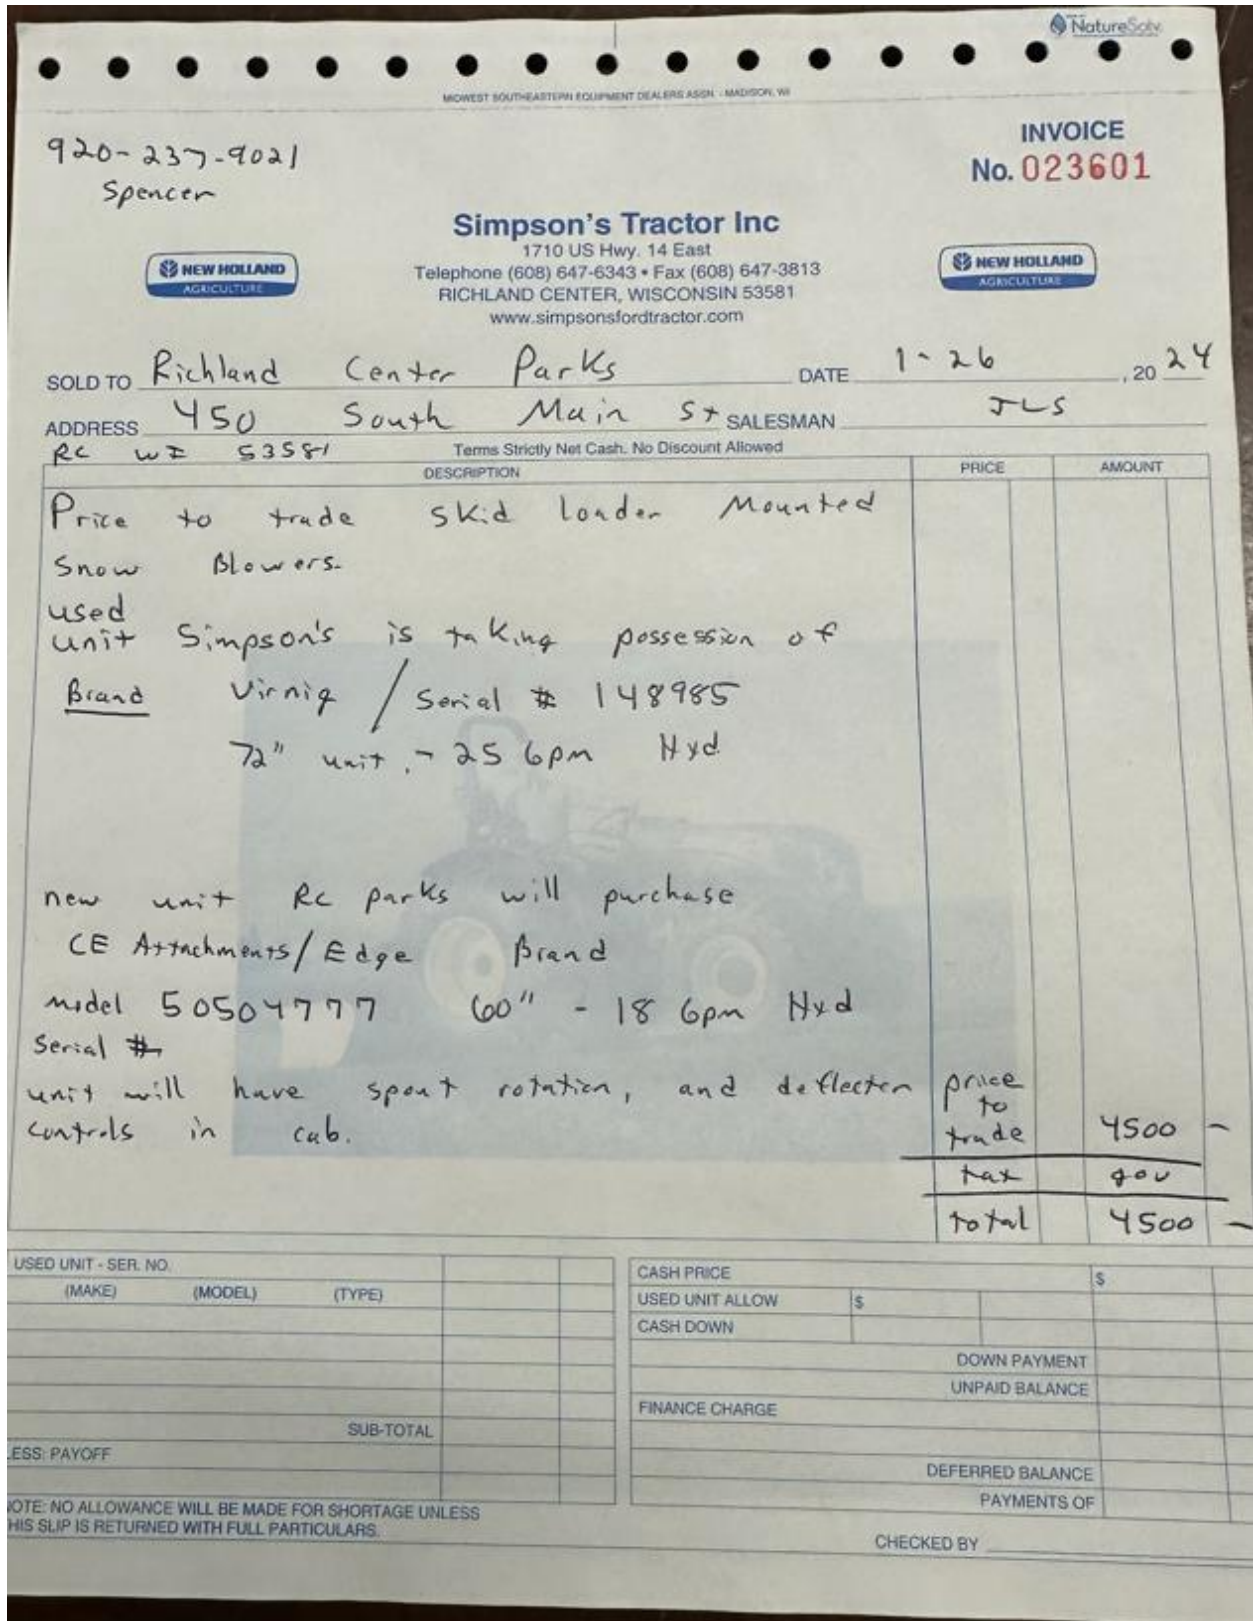 NatureSolv
MIDWEST SOUTHEASTERN EQUIPMENT DEALERS ASSN. - MADISON, WI
920-237-9021
Spencer
INVOICE
No. 023601
Simpson's Tractor Inc
1710 US Hwy. 14 East
Telephone (608) 647-6343 • Fax (608) 647-3813
RICHLAND CENTER, WISCONSIN 53581
www.simpsonsfordtractor.com
NEW HOLLAND
AGRICULTURE
NEW HOLLAND
AGRICULTURE
SOLD TO Richland Center Parks DATE 1-26, 20 24
ADDRESS 450 South Main St SALESMAN JLS
RC WI 53581 Terms Strictly Net Cash. No Discount Allowed
DESCRIPTION PRICE AMOUNT
Price to trade skid loader Mounted
Snow Blowers.
used
unit Simpson's is taking possession of
Brand Virnig / Serial # 148985
72" unit - 25 Gpm Hyd
new unit RC parks will purchase
CE Attachments/Edge Brand
model 50504777 60" - 18 Gpm Hyd
Serial #
unit will have spout rotation, and deflector
controls in cab.
price
to
trade 4500 -
tax gov
total 4500 -
USED UNIT - SER. NO.
(MAKE) (MODEL) (TYPE)
SUB-TOTAL
LESS: PAYOFF
NOTE: NO ALLOWANCE WILL BE MADE FOR SHORTAGE UNLESS
THIS SLIP IS RETURNED WITH FULL PARTICULARS.
CASH PRICE $
USED UNIT ALLOW $
CASH DOWN
DOWN PAYMENT
UNPAID BALANCE
FINANCE CHARGE
DEFERRED BALANCE
PAYMENTS OF
CHECKED BY